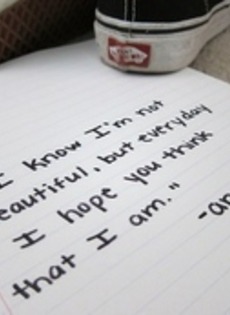 I know I'm not
eautiful, but everyday
I hope you think
that I am."
-an